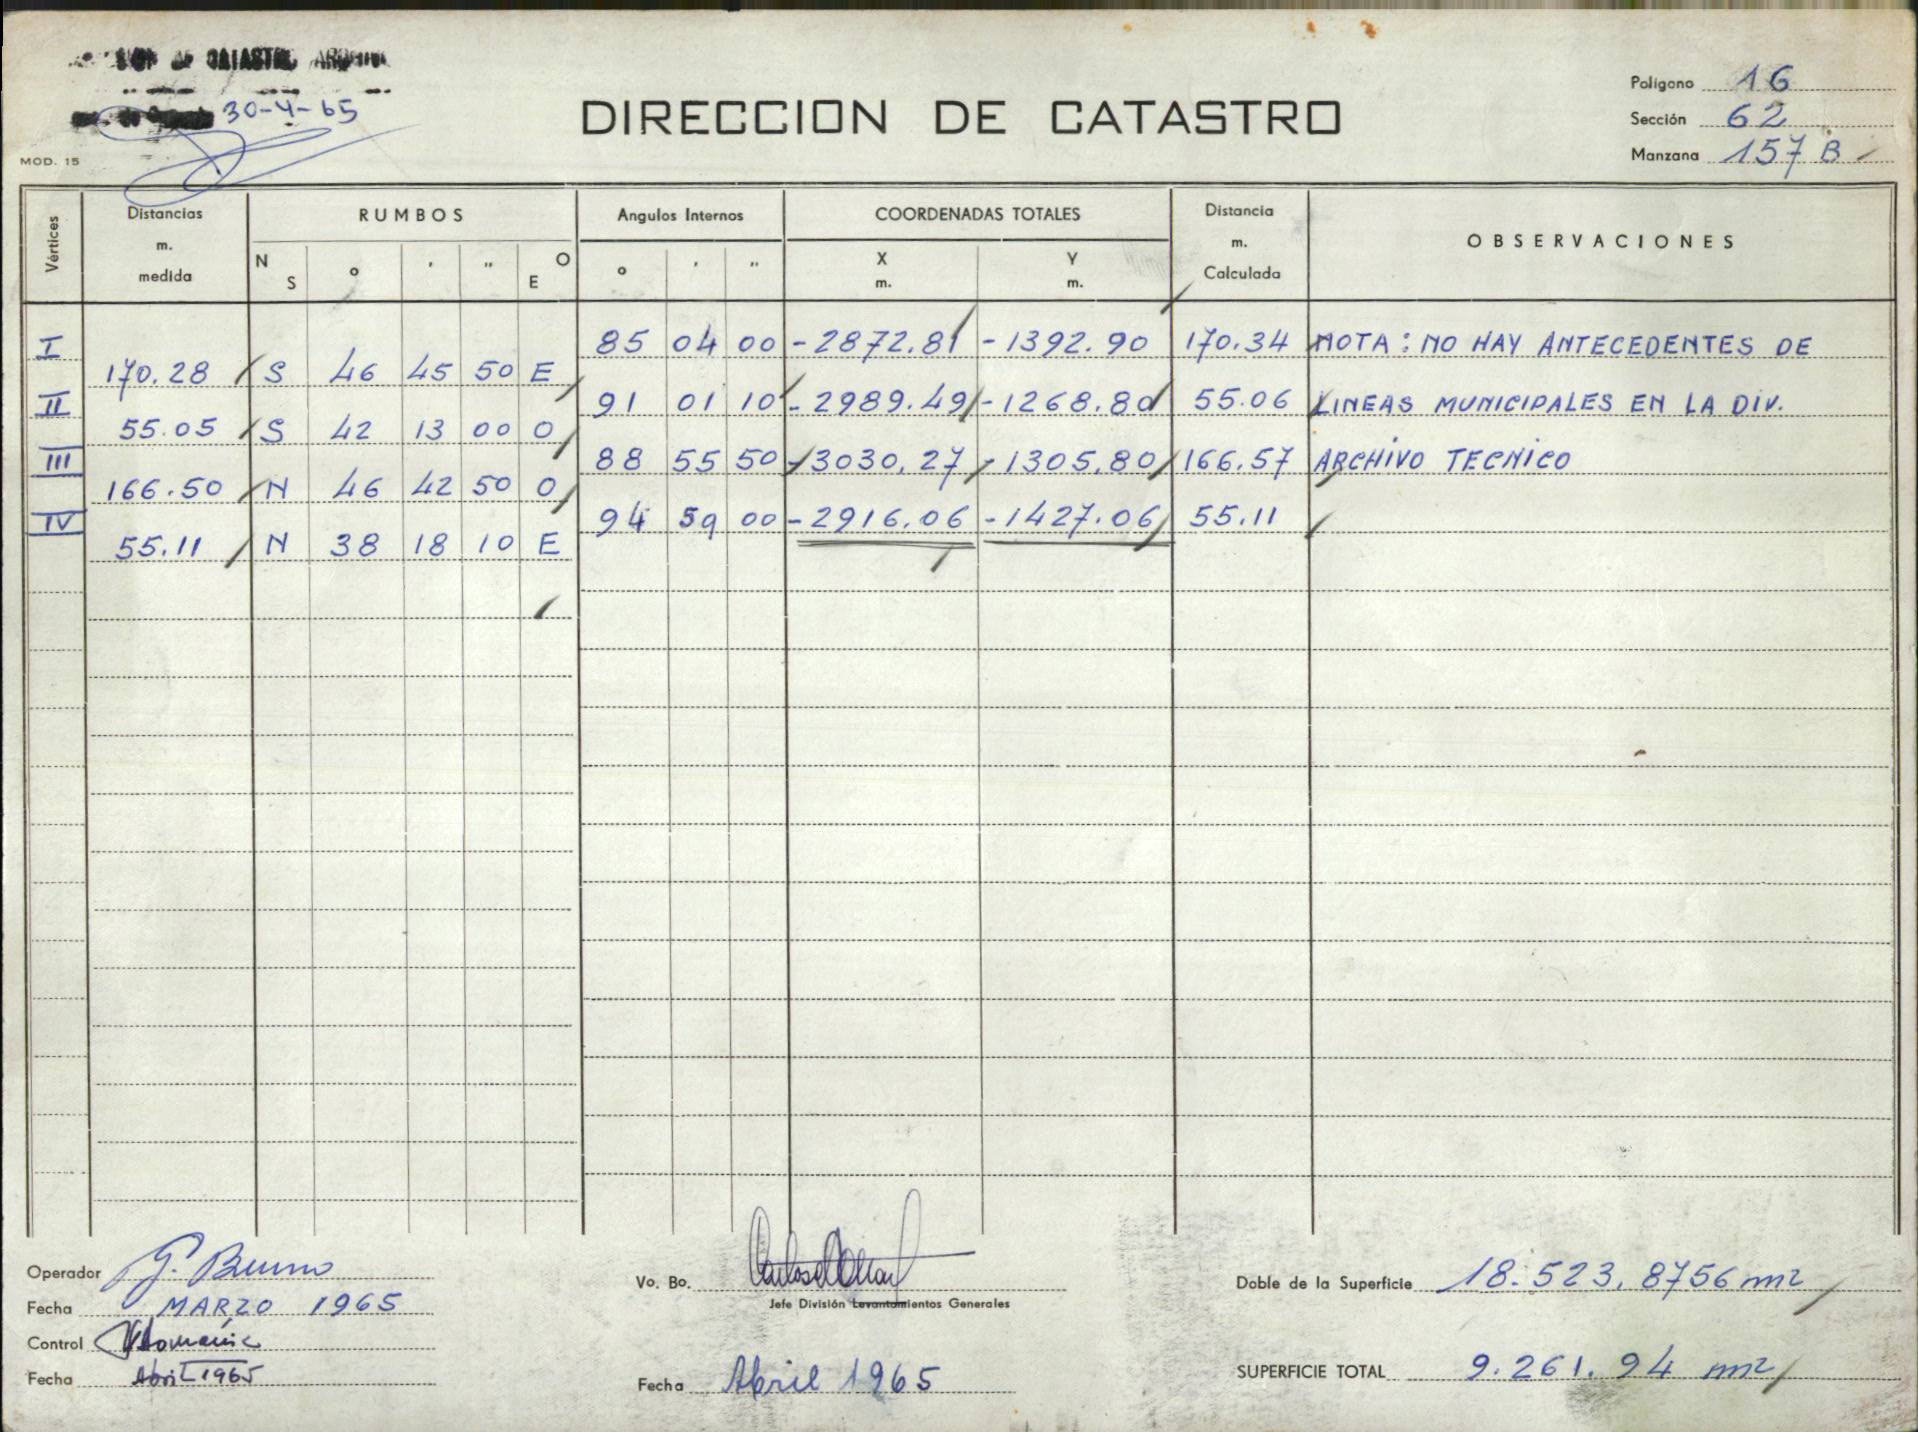 DE CATASTRO
30-4-65
DIRECCION DE CATASTRO
Polígono 16
Sección 62
Manzana 157 B
MOD. 15
Vértices
Distancias m. medida
RUMBOS
N S ° ' '' O E
Angulos Internos
° ' ''
COORDENADAS TOTALES
X m. Y m.
Distancia m. Calculada
OBSERVACIONES
I 85 04 00 -2872.81 -1392.90 170.34 NOTA: NO HAY ANTECEDENTES DE
170.28 S 46 45 50 E
II 91 01 10 -2989.49 -1268.80 55.06 LINEAS MUNICIPALES EN LA DIV.
55.05 S 42 13 00 O
III 88 55 50 -3030,27 -1305,80 166.57 ARCHIVO TECNICO
166.50 N 46 42 50 O
IV 94 59 00 -2916.06 -1427.06 55.11
55.11 N 38 18 10 E
Operador G. Bruno
Fecha MARZO 1965
Control
Fecha Abril 1965
Vo. Bo.
Jefe División Levantamientos Generales
Fecha Abril 1965
Doble de la Superficie 18.523,8756 m2
SUPERFICIE TOTAL 9.261.94 m2